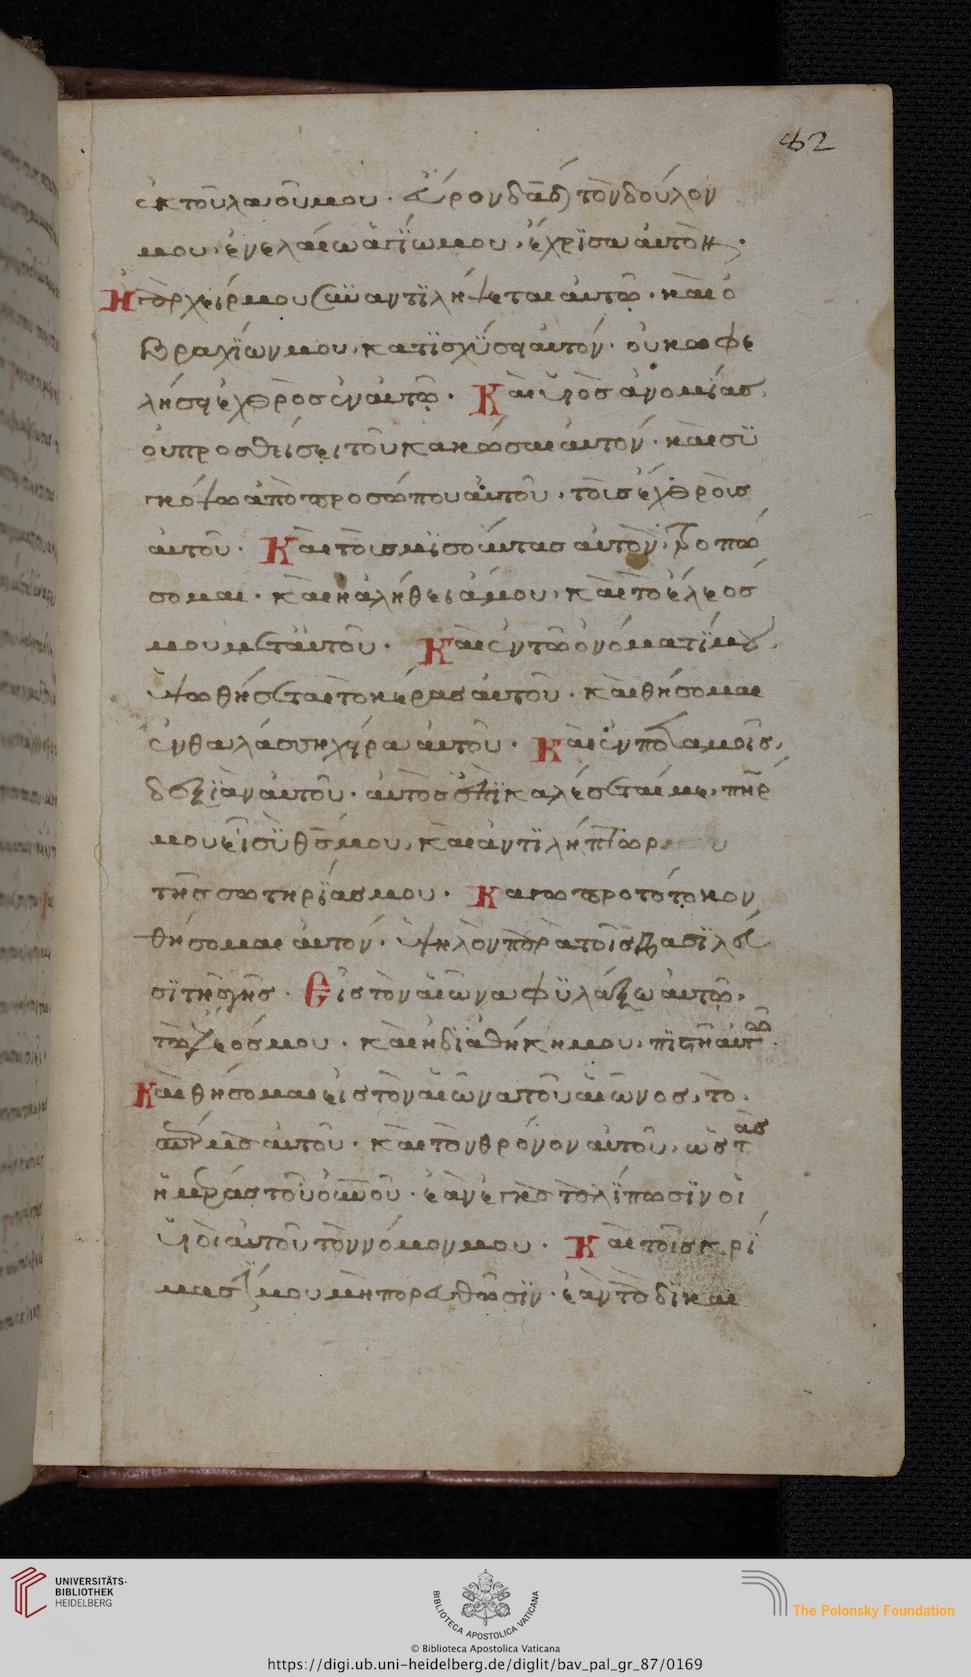 82
ἐκ τοῦ λαοῦ μου· εὗρον δαδ τὸν δοῦλον
μου· ἐν ἐλαίω ἁγίω μου, ἔχρϊσα αὐτόν·
Ἡ γὰρ χείρ μου συναντϊλήψεται αὐτῶ· καὶ ὁ
βραχίων μου, κατϊσχύσει αὐτόν· οὐκ ὠφε
λήσει ἐχθρὸς ἐν αὐτῶ· Καὶ ὑιὸς ἀνομίας,
οὐ προσθήσει τοῦ κακῶσαι αὐτόν· καὶ συ
κόψω ἀπὸ προσώπου αὐτοῦ, τοὺς ἐχθροὺς
αὐτοῦ· Καὶ τοὺς μισοῦντας αὐτὸν, τροπώ
σομαι· καὶ ἡ ἀλήθειά μου, καὶ τὸ ἔλεός
μου μετ' αὐτοῦ· Καὶ ἐν τῶ ὀνόματί μου
ὑψωθήσεται τὸ κέρας αὐτοῦ· καὶ θήσομαι
ἐν θαλάσση χεῖρα αὐτοῦ· Καὶ ἐν ποταμοῖς,
δεξϊὰν αὐτοῦ· αὐτὸς ἐπϊκαλέσεταί με, πηρ
μου εἶ σὺ θς μου, καὶ ἀντϊλήπτωρ
τῆς σωτηρίας μου· Κἀγὼ πρωτότοκον
θήσομαι αὐτόν· ὑψηλὸν παρὰ τοῖς βασϊλεῦ
σϊ τῆς γῆς· Εἰς τὸν αἰῶνα φυλάξω αὐτῶ,
τὸ ἔλεός μου· καὶ ἡ δϊαθήκη μου, πϊστὴ αὐτῶ·
Καὶ θήσομαι εἰς τὸν αἰῶνα τοῦ αἰῶνος, τὸ
σπέρμα αὐτοῦ· καὶ τὸν θρόνον αὐτοῦ, ὡς τὰς
ἡμέρας τοῦ οὐνοῦ· ἐὰν ἐγκαταλίπωσϊν οἱ
ὑιοὶ αὐτοῦ τὸν νόμον μου· Καὶ τοῖς κρί
μασί μου μὴ πορευθῶσϊν· ἐὰν τὰ δϊκαι
UNIVERSITÄTS-
BIBLIOTHEK
HEIDELBERG
BIBLIOTECA APOSTOLICA VATICANA
The Polonsky Foundation
© Biblioteca Apostolica Vaticana
https://digi.ub.uni-heidelberg.de/diglit/bav_pal_gr_87/0169